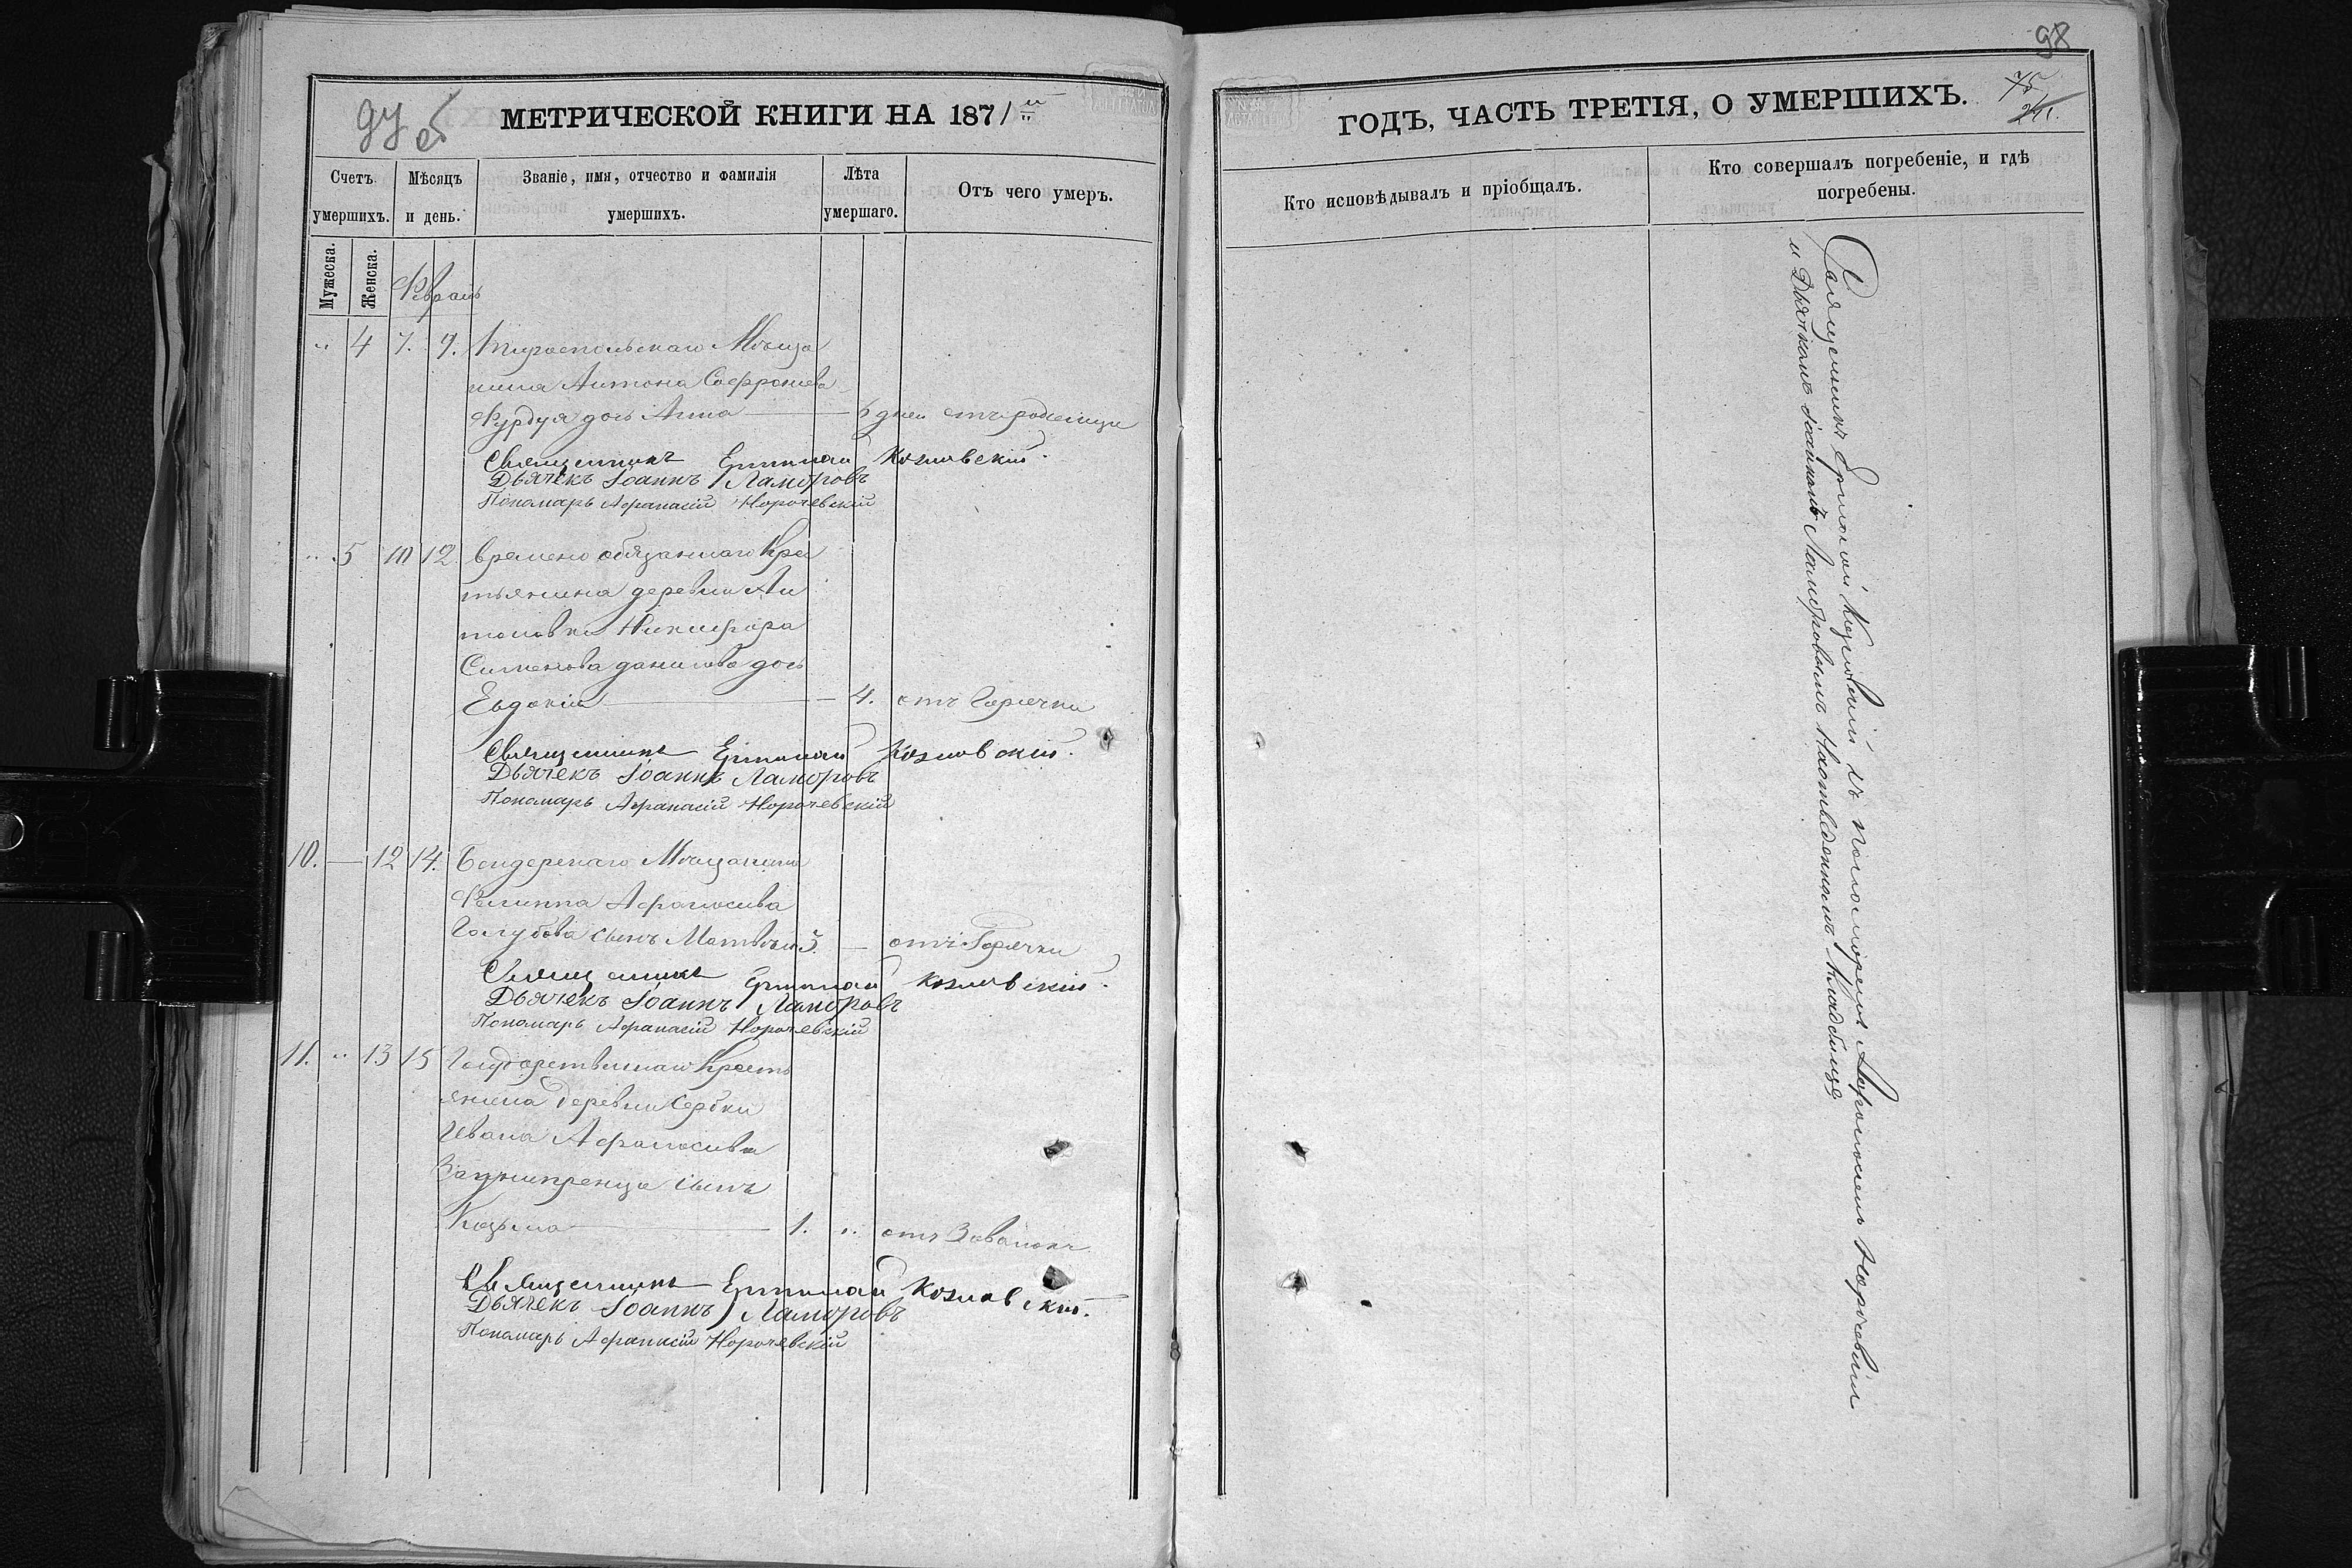 97 об
МЕТРИЧЕСКОЙ КНИГИ НА 1871 й
Счетъ умершихъ.
Мѣсяцъ и день.
Званіе, имя, отчество и фамилія умершихъ.
Лѣта умершаго.
Отъ чего умеръ.
Мужеска.
Женска.
Февраль
" 4 7. 9. Тираспольскаго Мѣща
нина Антона Софроніева
Фурдуя дочь Анна 6 дней отъ родимца
Священникъ Ермолай Козловскій.
Дьячекъ Іоаннъ Ламбровъ
Пономарь Афанасій Норочевскій
" 5 10 12 Времено обязаннаго Кре
тьянина деревни Ан
тоновки Никифора
Симеонова Данилова дочь
Евдокія 4. отъ Горячки
Священникъ Ермолай Козловскій.
Дьячекъ Іоаннъ Ламбровъ
Пономарь Афанасій Норочевскій
10. 12 14. Бендерскаго Мѣщанина
Филиппа Афанасиева
Голубова сынъ Матвѣй 3. отъ Горячки
Священникъ Ермолай Козловскій.
Дьячекъ Іоаннъ Ламбровъ
Пономарь Афанасій Норочевскій
11. " 13 15 Государственнаго Кресть
янина деревни Сербки
Ивана Афанасиева
Заднипренца сынъ
Козьма 1. " отъ Завалокъ
Священникъ Ермолай Козловскій.
Дьячекъ Іоаннъ Ламбровъ
Пономарь Афанасій Норочевскій
98
75
ГОДЪ, ЧАСТЬ ТРЕТІЯ, О УМЕРШИХЪ.
Кто исповѣдывалъ и пріобщалъ.
Кто совершалъ погребеніе, и гдѣ
погребены.
Священникъ Ермолай Козловскій съ пономаремъ Афанасіемъ Норочевскимъ
и Дьячкомъ Іоанномъ Ламбровымъ на отведенномъ кладбищѣ